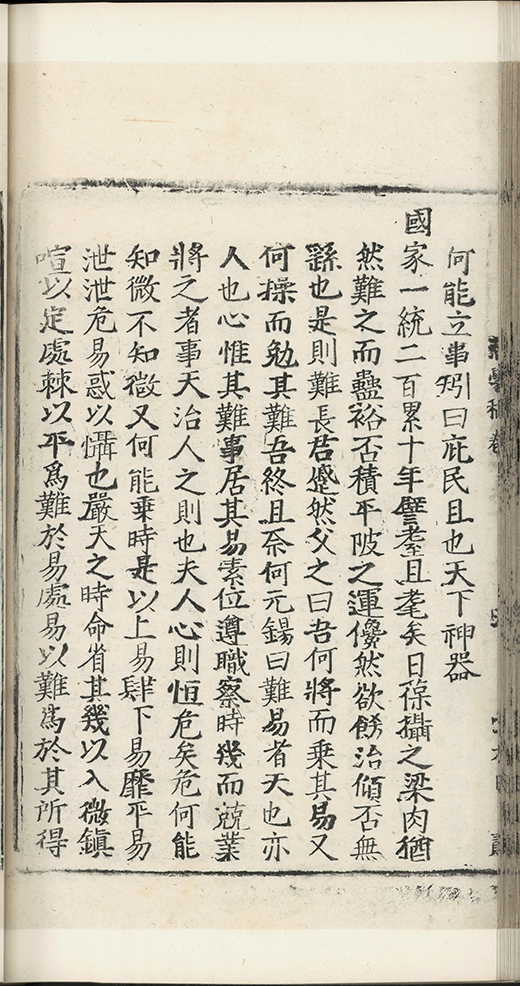 何能立事矧曰庇民且也天下神器
國家一統二百累十年譬耋且耄矣日葆攝之梁肉猶
然難之而蠱裕否積平陂之運儳然欲餝治傾否無
繇也是則難長君蹙然父之曰吾何將而乗其易又
何操而勉其難吾終且奈何元錫曰難易者天也亦
人也心惟其難事居其易素位遵職察時幾而兢業
將之者事天治人之則也夫人心則恒危矣危何能
知微不知微又何能乗時是以上易肆下易靡平易
泄泄危易惑以懾也嚴天之時命省其幾以入微鎮
喧以定處棘以平爲難於易處易以難爲於其所得